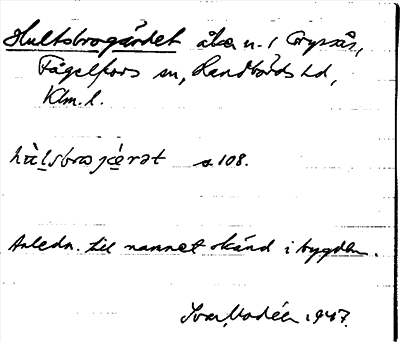 Hultsbrogärdet åker n. i Grypsås,
Fågelfors sn, Handbörds hd,
Klm. l.
hùlsbrogǽrət a 108.
Anledn. till namnet okänd i bygden.
Ivar Modéer 1947.